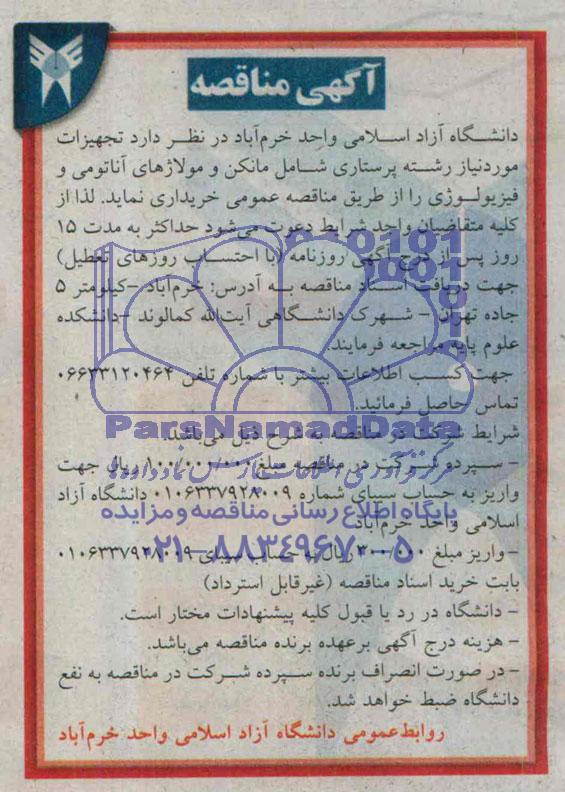 آگهی مناقصه
دانشگاه آزاد اسلامی واحد خرم‌آباد در نظر دارد تجهیزات
موردنیاز رشته پرستاری شامل مانکن و مولاژهای آناتومی و
فیزیولوژی را از طریق مناقصه عمومی خریداری نماید. لذا از
کلیه متقاضیان واجد شرایط دعوت می‌شود حداکثر به مدت ۱۵
روز پس از درج آگهی روزنامه (با احتساب روزهای تعطیل)
جهت دریافت اسناد مناقصه به آدرس: خرم‌آباد -کیلومتر ۵
جاده تهران - شهرک دانشگاهی آیت‌الله کمالوند -دانشکده
علوم پایه مراجعه فرمایند.
جهت کسب اطلاعات بیشتر با شماره تلفن ۰۶۶۳۳۱۲۰۴۶۴
تماس حاصل فرمائید.
شرایط شرکت در مناقصه به شرح ذیل می‌باشد.
ParsNamadData
- سپرده شرکت در مناقصه مبلغ ۱۰۰/۰۰۰/۰۰۰ ریال جهت
واریز به حساب سیبای شماره ۰۱۰۶۳۳۷۹۲۸۰۰۹ دانشگاه آزاد
اسلامی واحد خرم‌آباد
پایگاه اطلاع رسانی مناقصه و مزایده
-واریز مبلغ ۳۰۰/۰۰۰ ریال به حساب سیبای ۰۱۰۶۳۳۷۹۲۸۰۰۹
۰۲۱-۸۸۳۴۹۶۷۰-۵
بابت خرید اسناد مناقصه (غیرقابل استرداد)
- دانشگاه در رد یا قبول کلیه پیشنهادات مختار است.
- هزینه درج آگهی برعهده برنده مناقصه می‌باشد.
- در صورت انصراف برنده سپرده شرکت در مناقصه به نفع
دانشگاه ضبط خواهد شد.
روابط‌عمومی دانشگاه آزاد اسلامی واحد خرم‌آباد